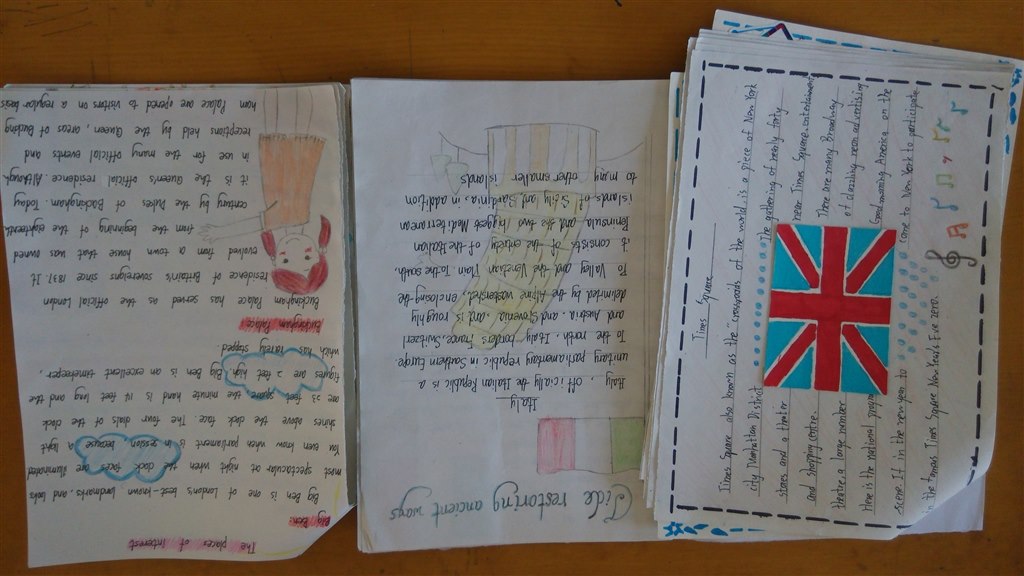 The places of Interest
Big Ben
Big Ben is one of London's best-known landmarks, and looks
most spectacular at night when the clock faces are illuminated
You even know when parliament is in session because a light
shines above the clock face The four dials of the clock
are 23 feet square the minute hand is 14 feet long and the
figures are 2 feet high Big Ben is an excellent timekeeper,
which has rarely stopped
Buckingham Palace
Buckingham Palace has served as the official London
residence of Britain's sovereigns since 1837. It
evolved from a town house that was owned
from the beginning of the eighteenth
century by the Dukes of Buckingham Today
it is the Queen's official residence Although
in use for the many official events and
receptions held by the Queen, areas of Bucking
ham Palace are opened to visitors on a regular basis
restoring ancient ways
Italy
Italy, officially the Italian Republic is a
unitary parliamentary republic in Southern Europe
To the north, Italy borders France, Switzerl
and Austria and Slovenia and is roughly
delimited by the Alpine watershed, enclosing the
Po Valley and the Venetian Plain To the south,
it consists of the entirety of the Italian
Peninsula and the two biggest Mediterranean
islands of Sicily and Sardinia in addition
to many other smaller islands
Times Square
Times Square also known as the "crossroads of the world, is a piece of New York
city Manhattan District The gathering of nearly forty
stores and a theater near Times Square entertainment
and shopping centre. There are many Broadway
theatre a large number of dazzling neon advertising
Here is the national America on the
scene If in the new year to come to New York to participate
in the famous Times Square New Year's Eve zero